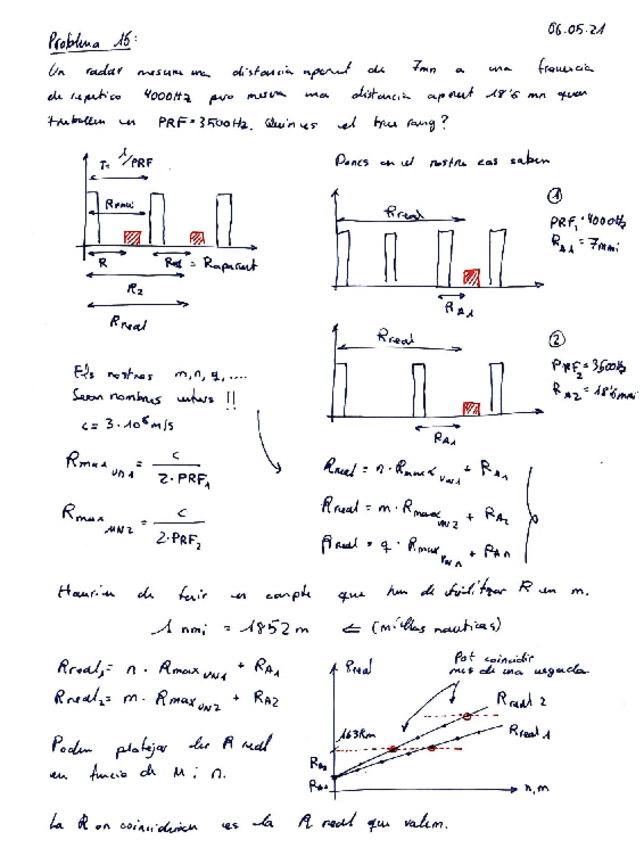 06.05.21
Problema 15:
Un radar mesura una distancia aparent de 7mn a una frequencia
de repetico 4000Hz pero mesura una distancia aparent 18'6 mn quan
treballem en PRF=3500Hz. Quin es el true rang?
T= 1/PRF
Rmax
R
= Raparent
R2
Rreal
Doncs en el nostre cas sabem
Rreal
RA1
①
PRF1=4000Hz
RA1 = 7nmi
Rreal
RA1
②
PRF2=3500Hz
RA2=18'6nmi
Els nostres m,n,q,....
Seran nombres enters !!
c=3·10⁸m/s
Rmax UN1 = c / 2·PRF1
Rmax UN2 = c / 2·PRF2
Rreal = n·Rmax UN1 + RA1
Rreal = m·Rmax UN2 + RA2
Rreal = q·Rmax UNn + RAn
Haurien de tenir en compte que hem de utilitzar R en m.
1 nmi = 1852m ⇐ (milles nautiques)
Rreal1= n·Rmax UN1 + RA1
Rreal2= m·Rmax UN2 + RA2
Podem plotejar les R real
en funcio de M i n.
Rreal
Pot coincidir
mes de una vegada
Rreal 2
Rreal 1
163Km
RA2
RA1
n,m
La R on coincideixen es la R real que valem.